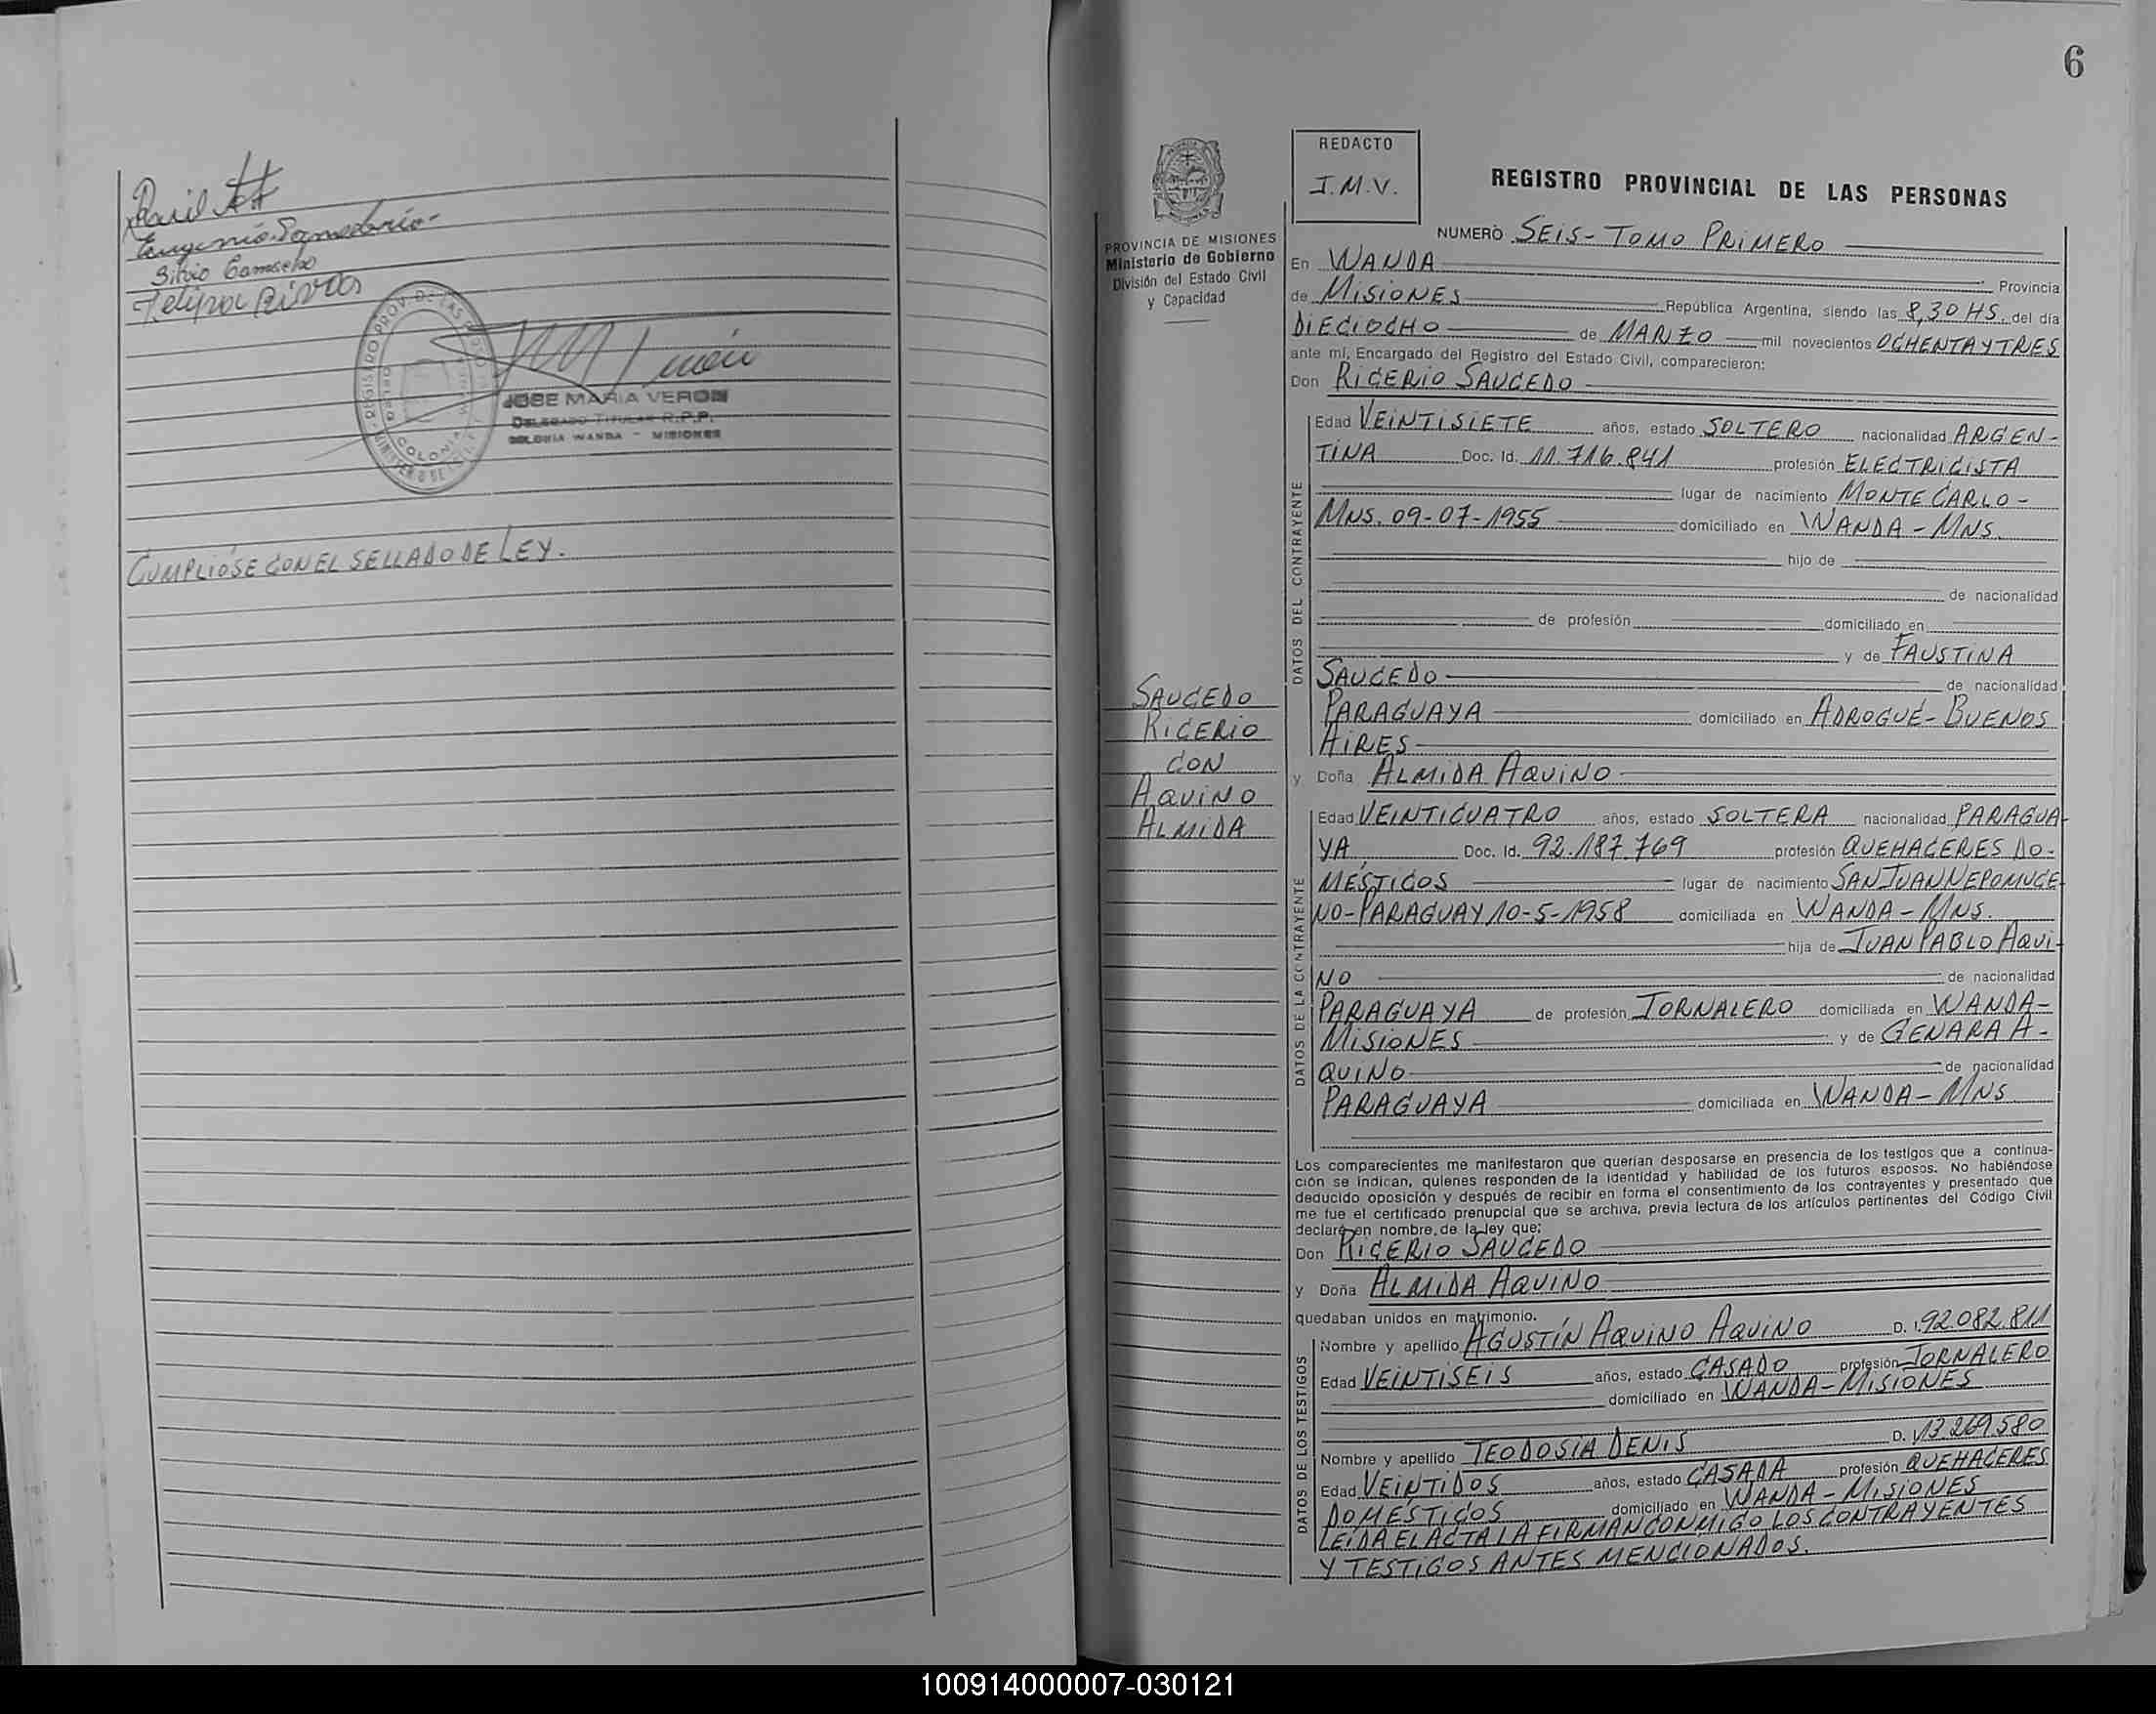 Eugenio
Silvio Camacho
JOSE MARIA VERON
DELEGADO TITULAR R.P.P.
COLONIA WANDA - MISIONES
CUMPLIÓSE CON EL SELLADO DE LEY.
6
REDACTO
J.M.V.
REGISTRO PROVINCIAL DE LAS PERSONAS
PROVINCIA DE MISIONES
Ministerio de Gobierno
División del Estado Civil
y Capacidad
SAUCEDO
RICERIO
CON
AQUINO
ALMIDA
NUMERO SEIS - TOMO PRIMERO
En WANDA Provincia
de MISIONES República Argentina, siendo las 8,30 HS. del día
DIECIOCHO de MARZO mil novecientos OCHENTA Y TRES
ante mí, Encargado del Registro del Estado Civil, comparecieron:
Don RICERIO SAUCEDO
DATOS DEL CONTRAYENTE
Edad VEINTISIETE años, estado SOLTERO nacionalidad ARGEN-
TINA Doc. Id. 11.716.841 profesión ELECTRICISTA
lugar de nacimiento MONTE CARLO -
MNS. 09-07-1955 domiciliado en WANDA - MNS.
hijo de
de nacionalidad
de profesión domiciliado en
y de FAUSTINA
SAUCEDO de nacionalidad
PARAGUAYA domiciliado en ADROGUÉ - BUENOS
AIRES
y Doña ALMIDA AQUINO
DATOS DE LA CONTRAYENTE
Edad VEINTICUATRO años, estado SOLTERA nacionalidad PARAGUA-
YA Doc. Id. 92.187.769 profesión QUEHACERES DO-
MÉSTICOS lugar de nacimiento SAN JUAN NEPOMUCE-
NO-PARAGUAY 10-5-1958 domiciliada en WANDA - MNS.
hija de JUAN PABLO AQUI-
NO de nacionalidad
PARAGUAYA de profesión JORNALERO domiciliada en WANDA-
MISIONES y de GENARA A-
QUINO de nacionalidad
PARAGUAYA domiciliada en WANDA - MNS
Los comparecientes me manifestaron que querían desposarse en presencia de los testigos que a continua-
ción se indican, quienes responden de la identidad y habilidad de los futuros esposos. No habiéndose
deducido oposición y después de recibir en forma el consentimiento de los contrayentes y presentado que
me fue el certificado prenupcial que se archiva, previa lectura de los artículos pertinentes del Código Civil
declaré en nombre de la ley que:
Don RICERIO SAUCEDO
y Doña ALMIDA AQUINO
quedaban unidos en matrimonio.
DATOS DE LOS TESTIGOS
Nombre y apellido AGUSTÍN AQUINO AQUINO D. I. 92.082.811
Edad VEINTISEIS años, estado CASADO profesión JORNALERO
domiciliado en WANDA - MISIONES
Nombre y apellido TEODOSIA DENIS D. 13.269.580
Edad VEINTIDOS años, estado CASADA profesión QUEHACERES
DOMÉSTICOS domiciliado en WANDA - MISIONES
LEÍDA EL ACTA LA FIRMAN CONMIGO LOS CONTRAYENTES
Y TESTIGOS ANTES MENCIONADOS.
100914000007-030121